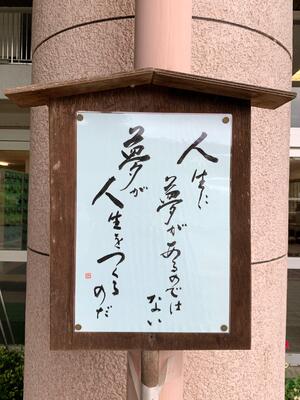 人生に
夢があるのでは
ない
夢が
人生をつくる
のだ